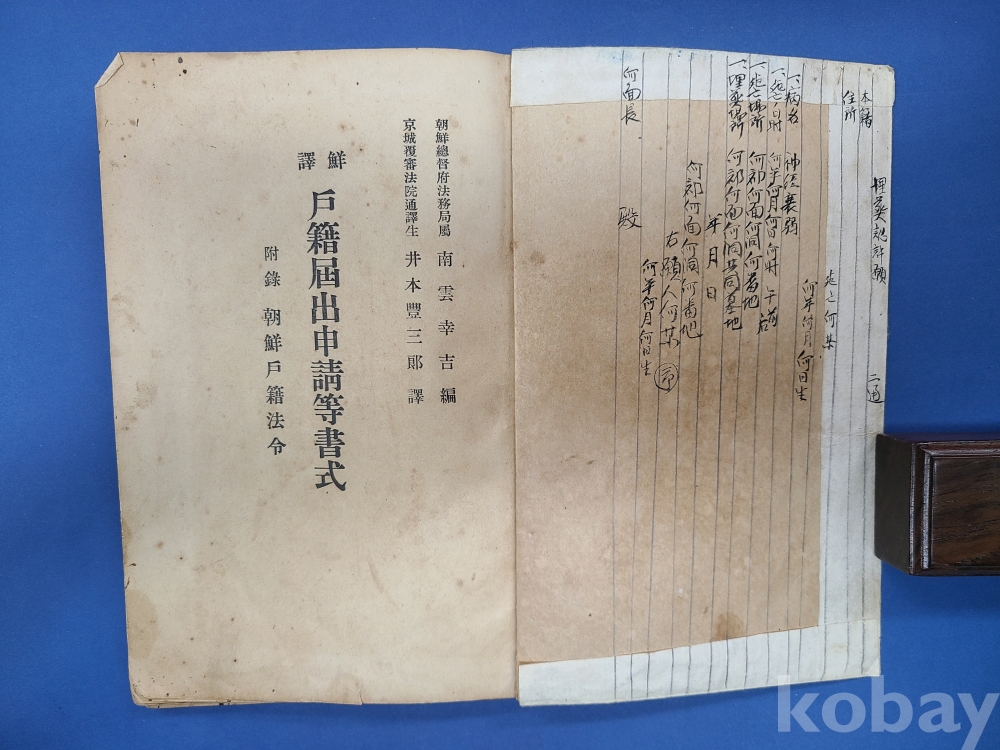 埋葬認許願 二通
本籍
住所
死亡 何某
何年何月何日生
一、病名 神経衰弱
一、死亡ノ日時 何年何月何日何時 午前后
一、死亡場所 何郡何面何洞何番地
一、埋葬場所 何郡何面何洞共同墓地
年 月 日
何郡何面何洞何番地
右願人何某 ㊞
何年何月何日生
何面長 殿
朝鮮總督府法務局屬 南雲幸吉 編
京城覆審法院通譯生 井本豐三郞 譯
鮮譯
戶籍屆出申請等書式
附錄 朝鮮戶籍法令
kobay